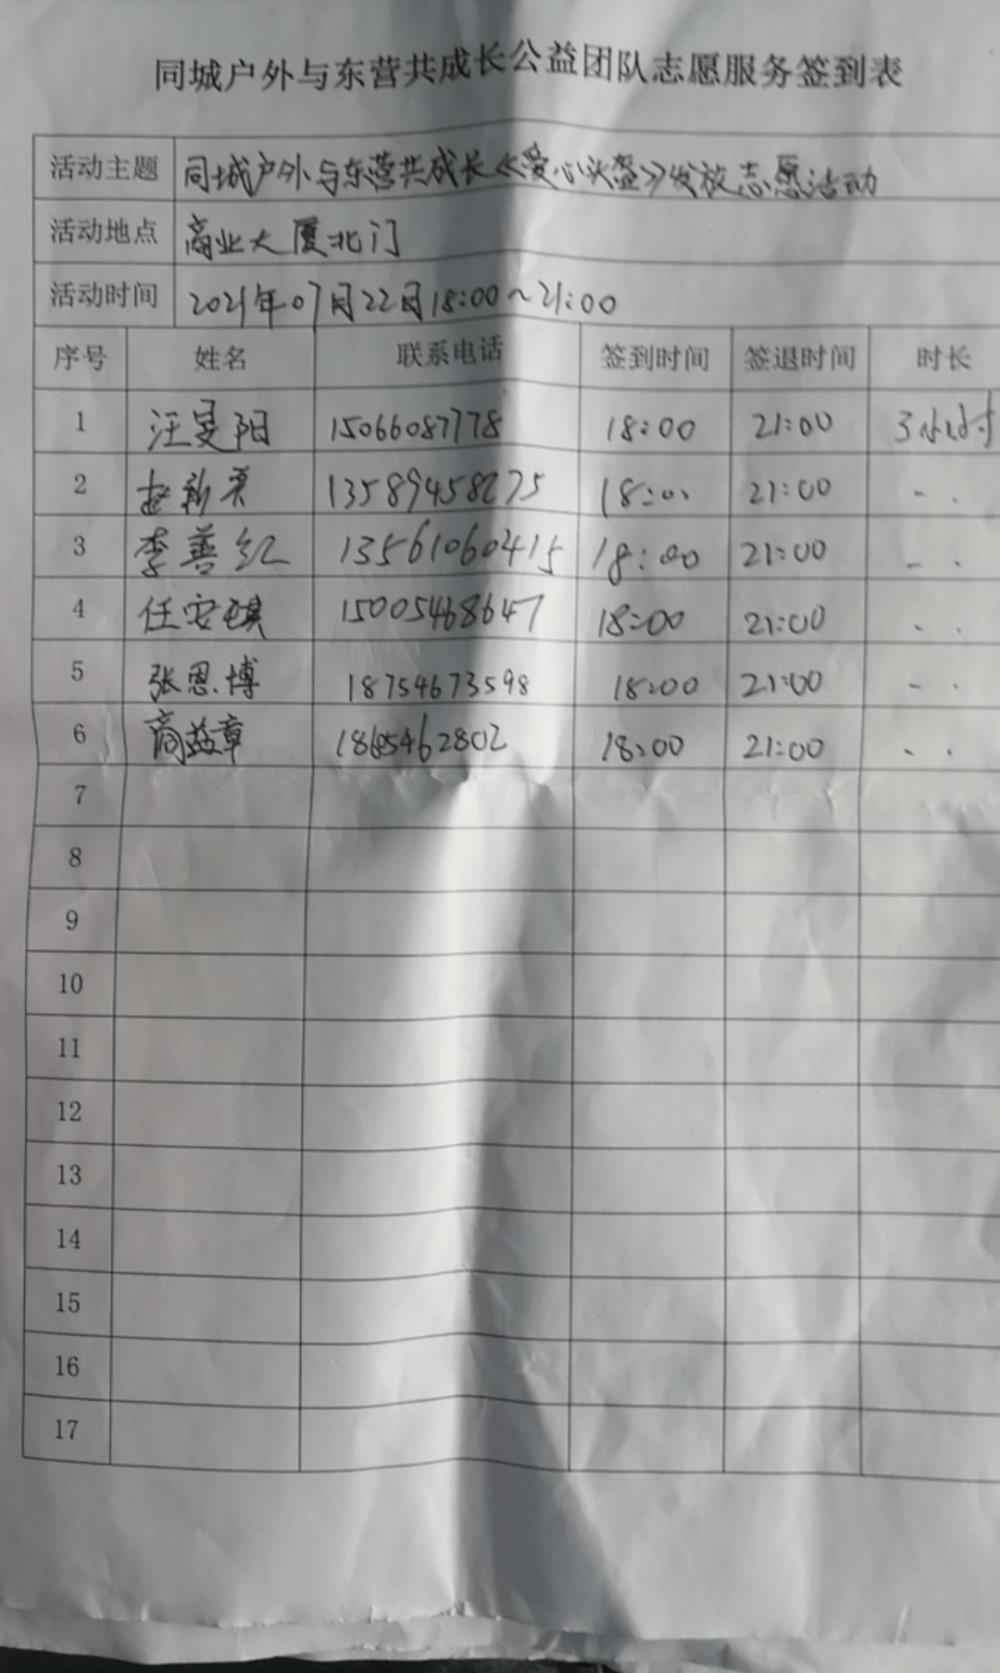 同城户外与东营共成长公益团队志愿服务签到表
活动主题 同城户外与东营共成长《爱心头盔》发放志愿活动
活动地点 商业大厦北门
活动时间 2021年07月22日18:00~21:00
序号 姓名 联系电话 签到时间 签退时间 时长
1 汪旻阳 15066087778 18:00 21:00 3小时
2 赵新 13589458275 18:00 21:00 - .
3 李善红 13561060415 18:00 21:00 - .
4 任安琪 15005468647 18:00 21:00 . .
5 张恩博 18754673598 18:00 21:00 - .
6 商益章 18654462802 18:00 21:00 . .
7
8
9
10
11
12
13
14
15
16
17